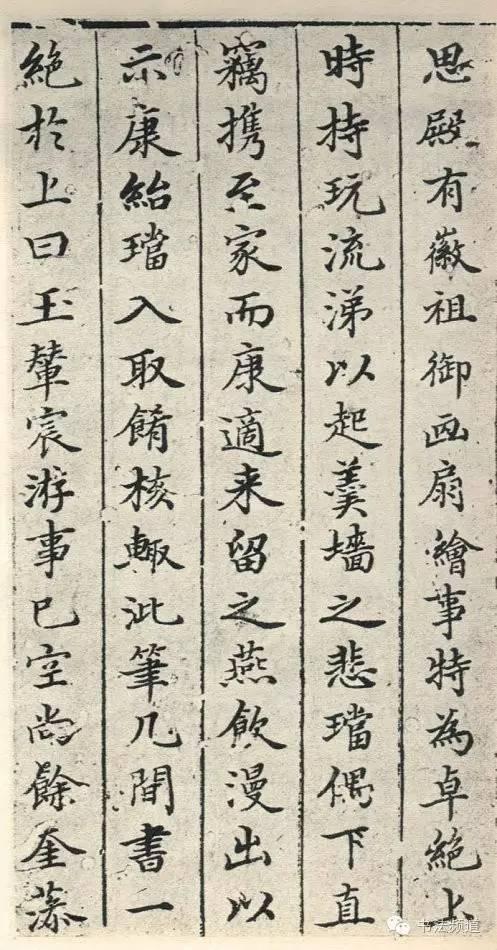 思殿有徽祖御画扇繪事特為卓絶上
時持玩流涕以起羹墻之悲璫偶下直
竊携至家而康適来留之燕飲漫出以
示康紿璫入取餚核輙泚筆几間書一
絶於上曰玉輦宸游事已空尚餘奎藻
书法频道